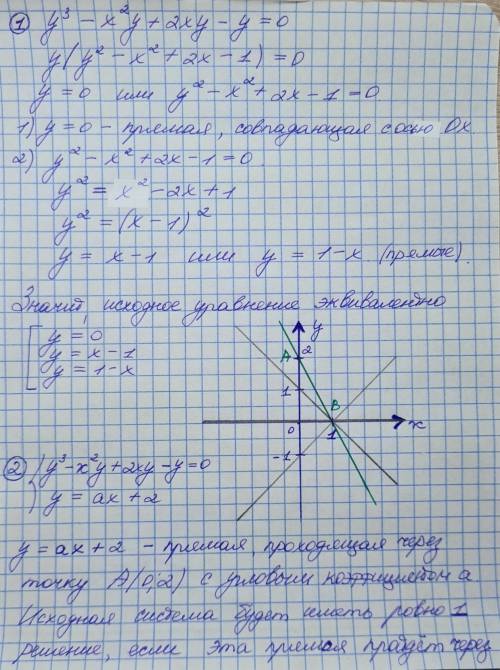 ① y³ - x²y + 2xy - y = 0
y(y² - x² + 2x - 1) = 0
y = 0 или y² - x² + 2x - 1 = 0
1) y = 0 - прямая, совпадающая с осью Ox
2) y² - x² + 2x - 1 = 0.
y² = x² - 2x + 1
y² = (x - 1)²
y = x - 1 или y = 1 - x (прямые).
Значит, исходное уравнение эквивалентно
[ y = 0
y = x - 1
y = 1 - x
y
A 2
1
B
0 1 x
-1
② { y³ - x²y + 2xy - y = 0
y = ax + 2
y = ax + 2 - прямая, проходящая через
точку A(0,2) с угловым коэффициентом a
Исходная система будет иметь ровно 1
решение, если эта прямая пройдёт через